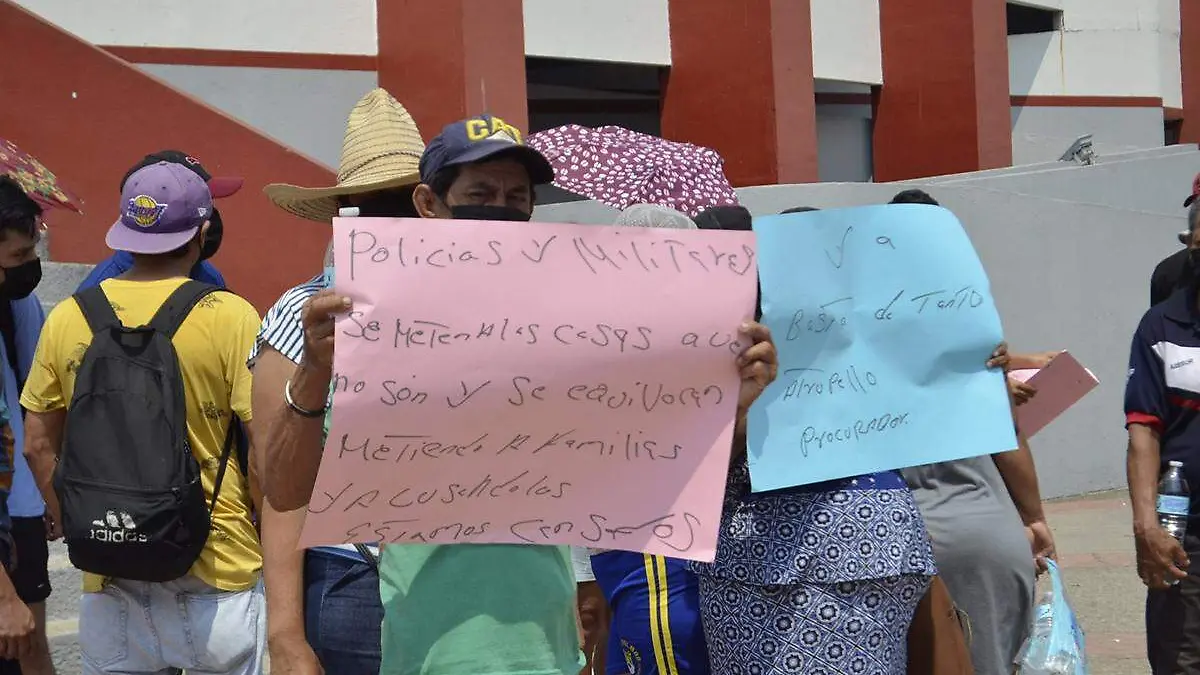 CAT
adidas
Policias y Militares
se meten Alas casas que
no son y se equivocan
Metiendo A Familias
y Acusandolas
estamos cansados
y a
Basta de Tanto
Atropello
Procurador